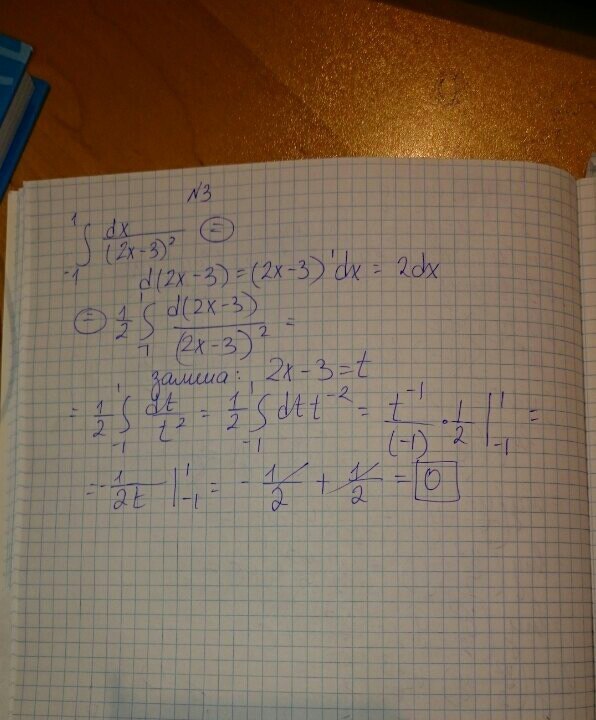 N3
∫₋₁¹ dx/(2x-3)² (=)
d(2x-3) = (2x-3)'dx = 2dx
(=) 1/2 ∫₋₁¹ d(2x-3)/(2x-3)² =
замена: 2x-3=t
= 1/2 ∫₋₁¹ dt/t² = 1/2 ∫₋₁¹ dt t⁻² = t⁻¹/(-1) · 1/2 |₋₁¹ =
= -1/2t |₋₁¹ = -1/2 + 1/2 = 0